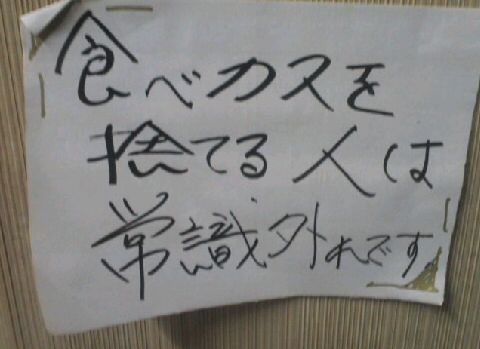 食べカスを
捨てる人は
常識外れです